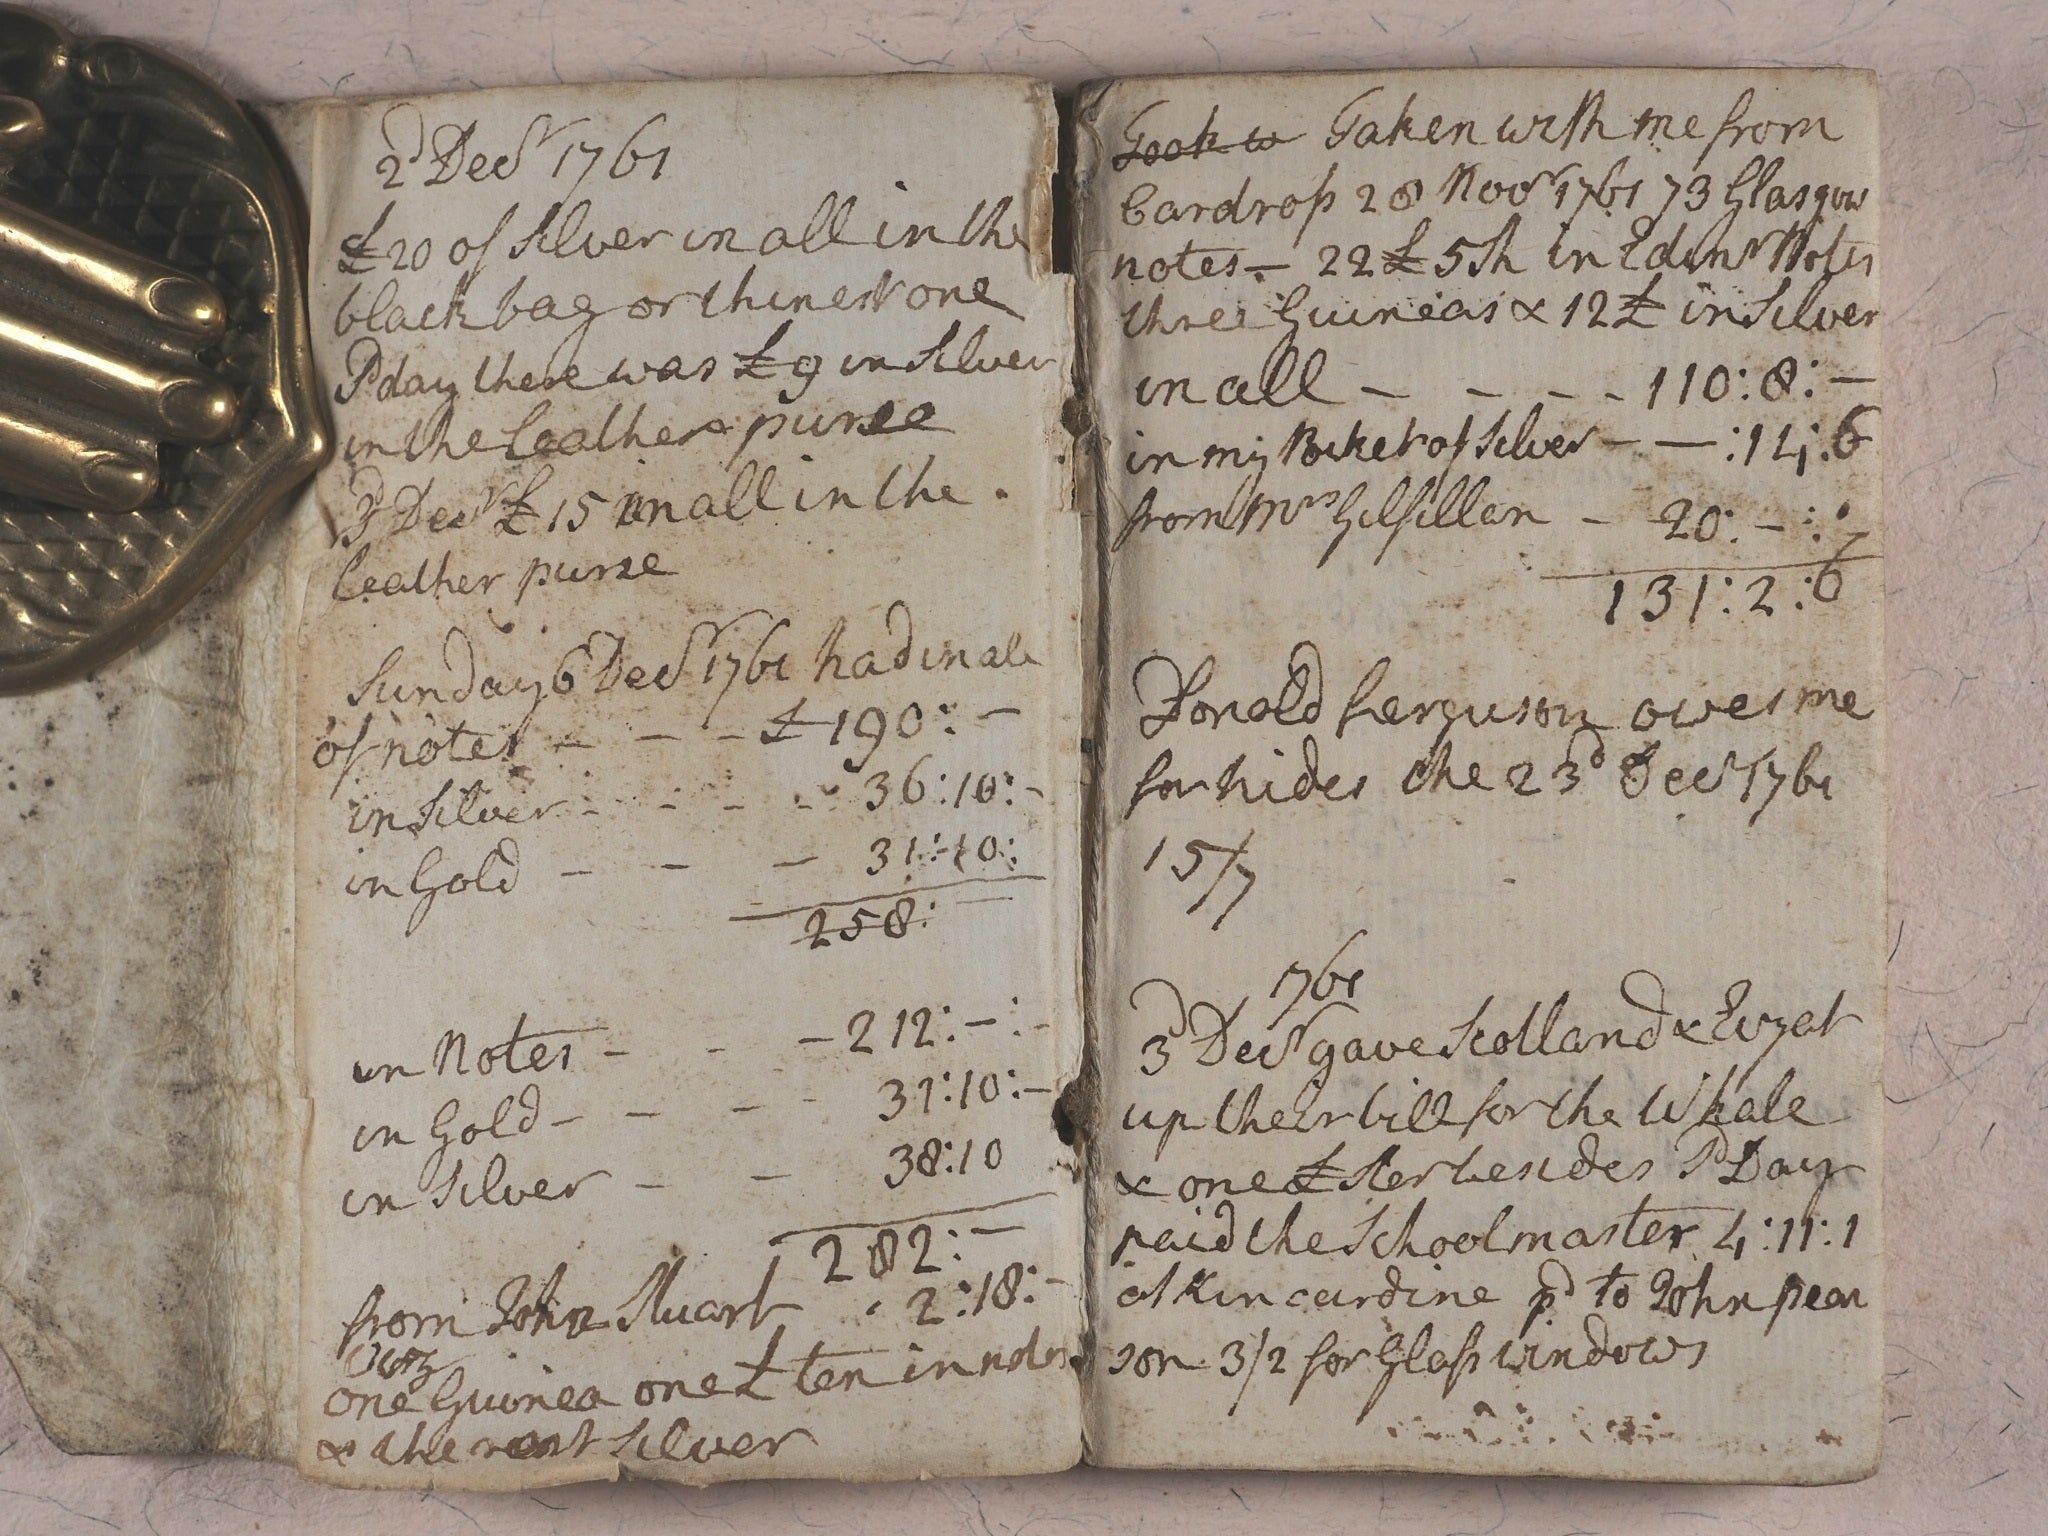 2d Decr 1761
£20 of silver in all in the
black bag or thinest one
Pd day there was £9 in silver
in the leather purse
3d Decr £15 in all in the
leather purse
Sunday 6 Decr 1761 had in all
of notes - - - £190: -
in silver - - - - 36:10: -
in Gold - - - 31:10:
258: -
in Notes - - - 212: - : -
in Gold - - - - 31:10: -
in silver - - - 38:10
282: -
from John Stuart - 2:18: -
vizt
one Guinea one £ ten in notes
& the rest silver
Took w Taken with me from
Cardross 28 Novr 1761 73 Glasgow
notes - 22£ 5sh in Edinr Notes
three Guineas & 12£ in silver
in all - - - - 110:8: -
in my Pocket of silver - - :14:6
from Mrs Gilfillan - 20: - : -
131:2:6
Donald ferguson owes me
for hides the 23d Decr 1761
15/7
1761
3d Decr gave Scolland &
up their bill for the Whale
& one £ ster besides Pd Day
paid the Schoolmaster 4:11:1
of Kincardine pd to John pear
son 3/2 for Glass windows